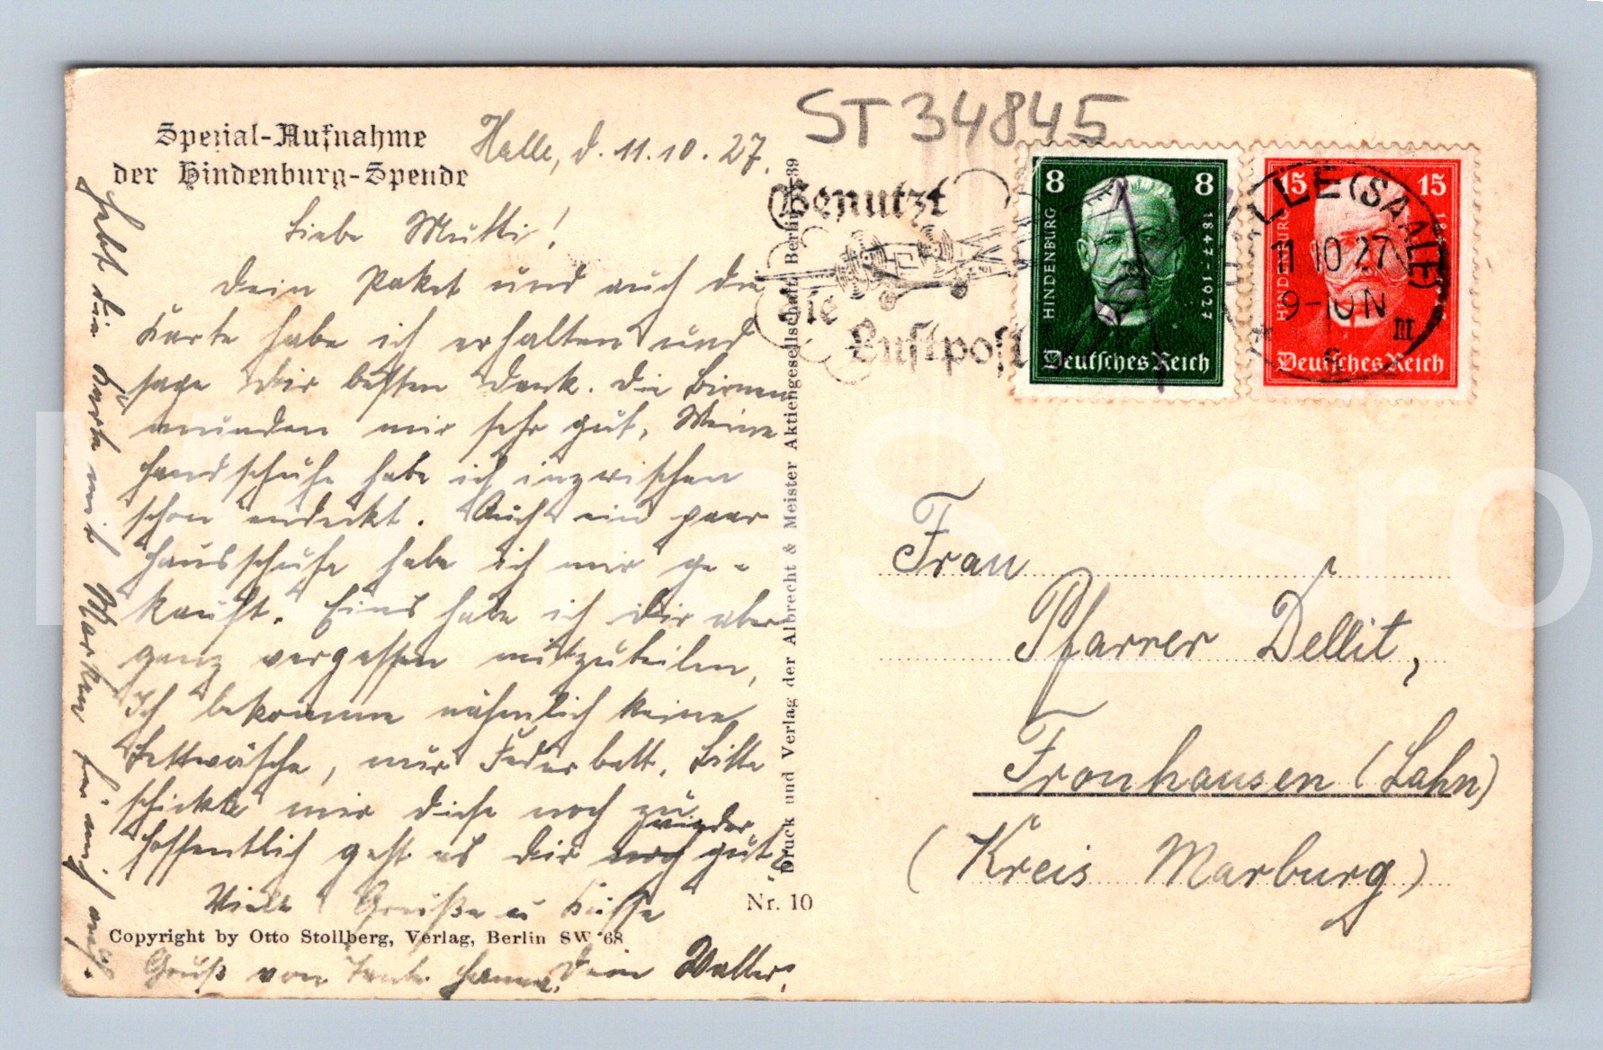 Spezial-Aufnahme
der Hindenburg-Spende
Halle, d. 11.10.27.
Liebe Mutti!
Dein Paket und auch die
Karte habe ich erhalten und
sage Dir besten Dank. Die Birnen
munden mir sehr gut, Meine
Handschuhe habe ich inzwischen
schon endeckt. Auch ein paar
Hausschuhe habe ich mir ge-
kauft. Eins habe ich Dir aber
ganz vergessen mitzuteilen,
Ich bekomme nähmlich keine
Bettwäsche, nur Federbett. Bitte
schickt mir diese noch zu
Hoffentlich geht es Dir wieder gut.
Viele Grüße u Küsse
Dein Walter.
Gruß von Tante Hanna.
Hebt die Karte mit Marken für mich auf.
Copyright by Otto Stollberg, Verlag, Berlin SW 68
Nr. 10
Druck und Verlag der Albrecht & Meister Aktiengesellschaft, Berlin-39
ST 34845
Benutzt
die
Luftpost
8 8
HINDENBURG
1847-1927
Deutsches Reich
15 15
HINDENBURG
Deutsches Reich
HALLE (SAALE)
11 10 27
9-10 N
Frau
Pfarrer Dellit,
Fronhausen (Lahn)
(Kreis Marburg)